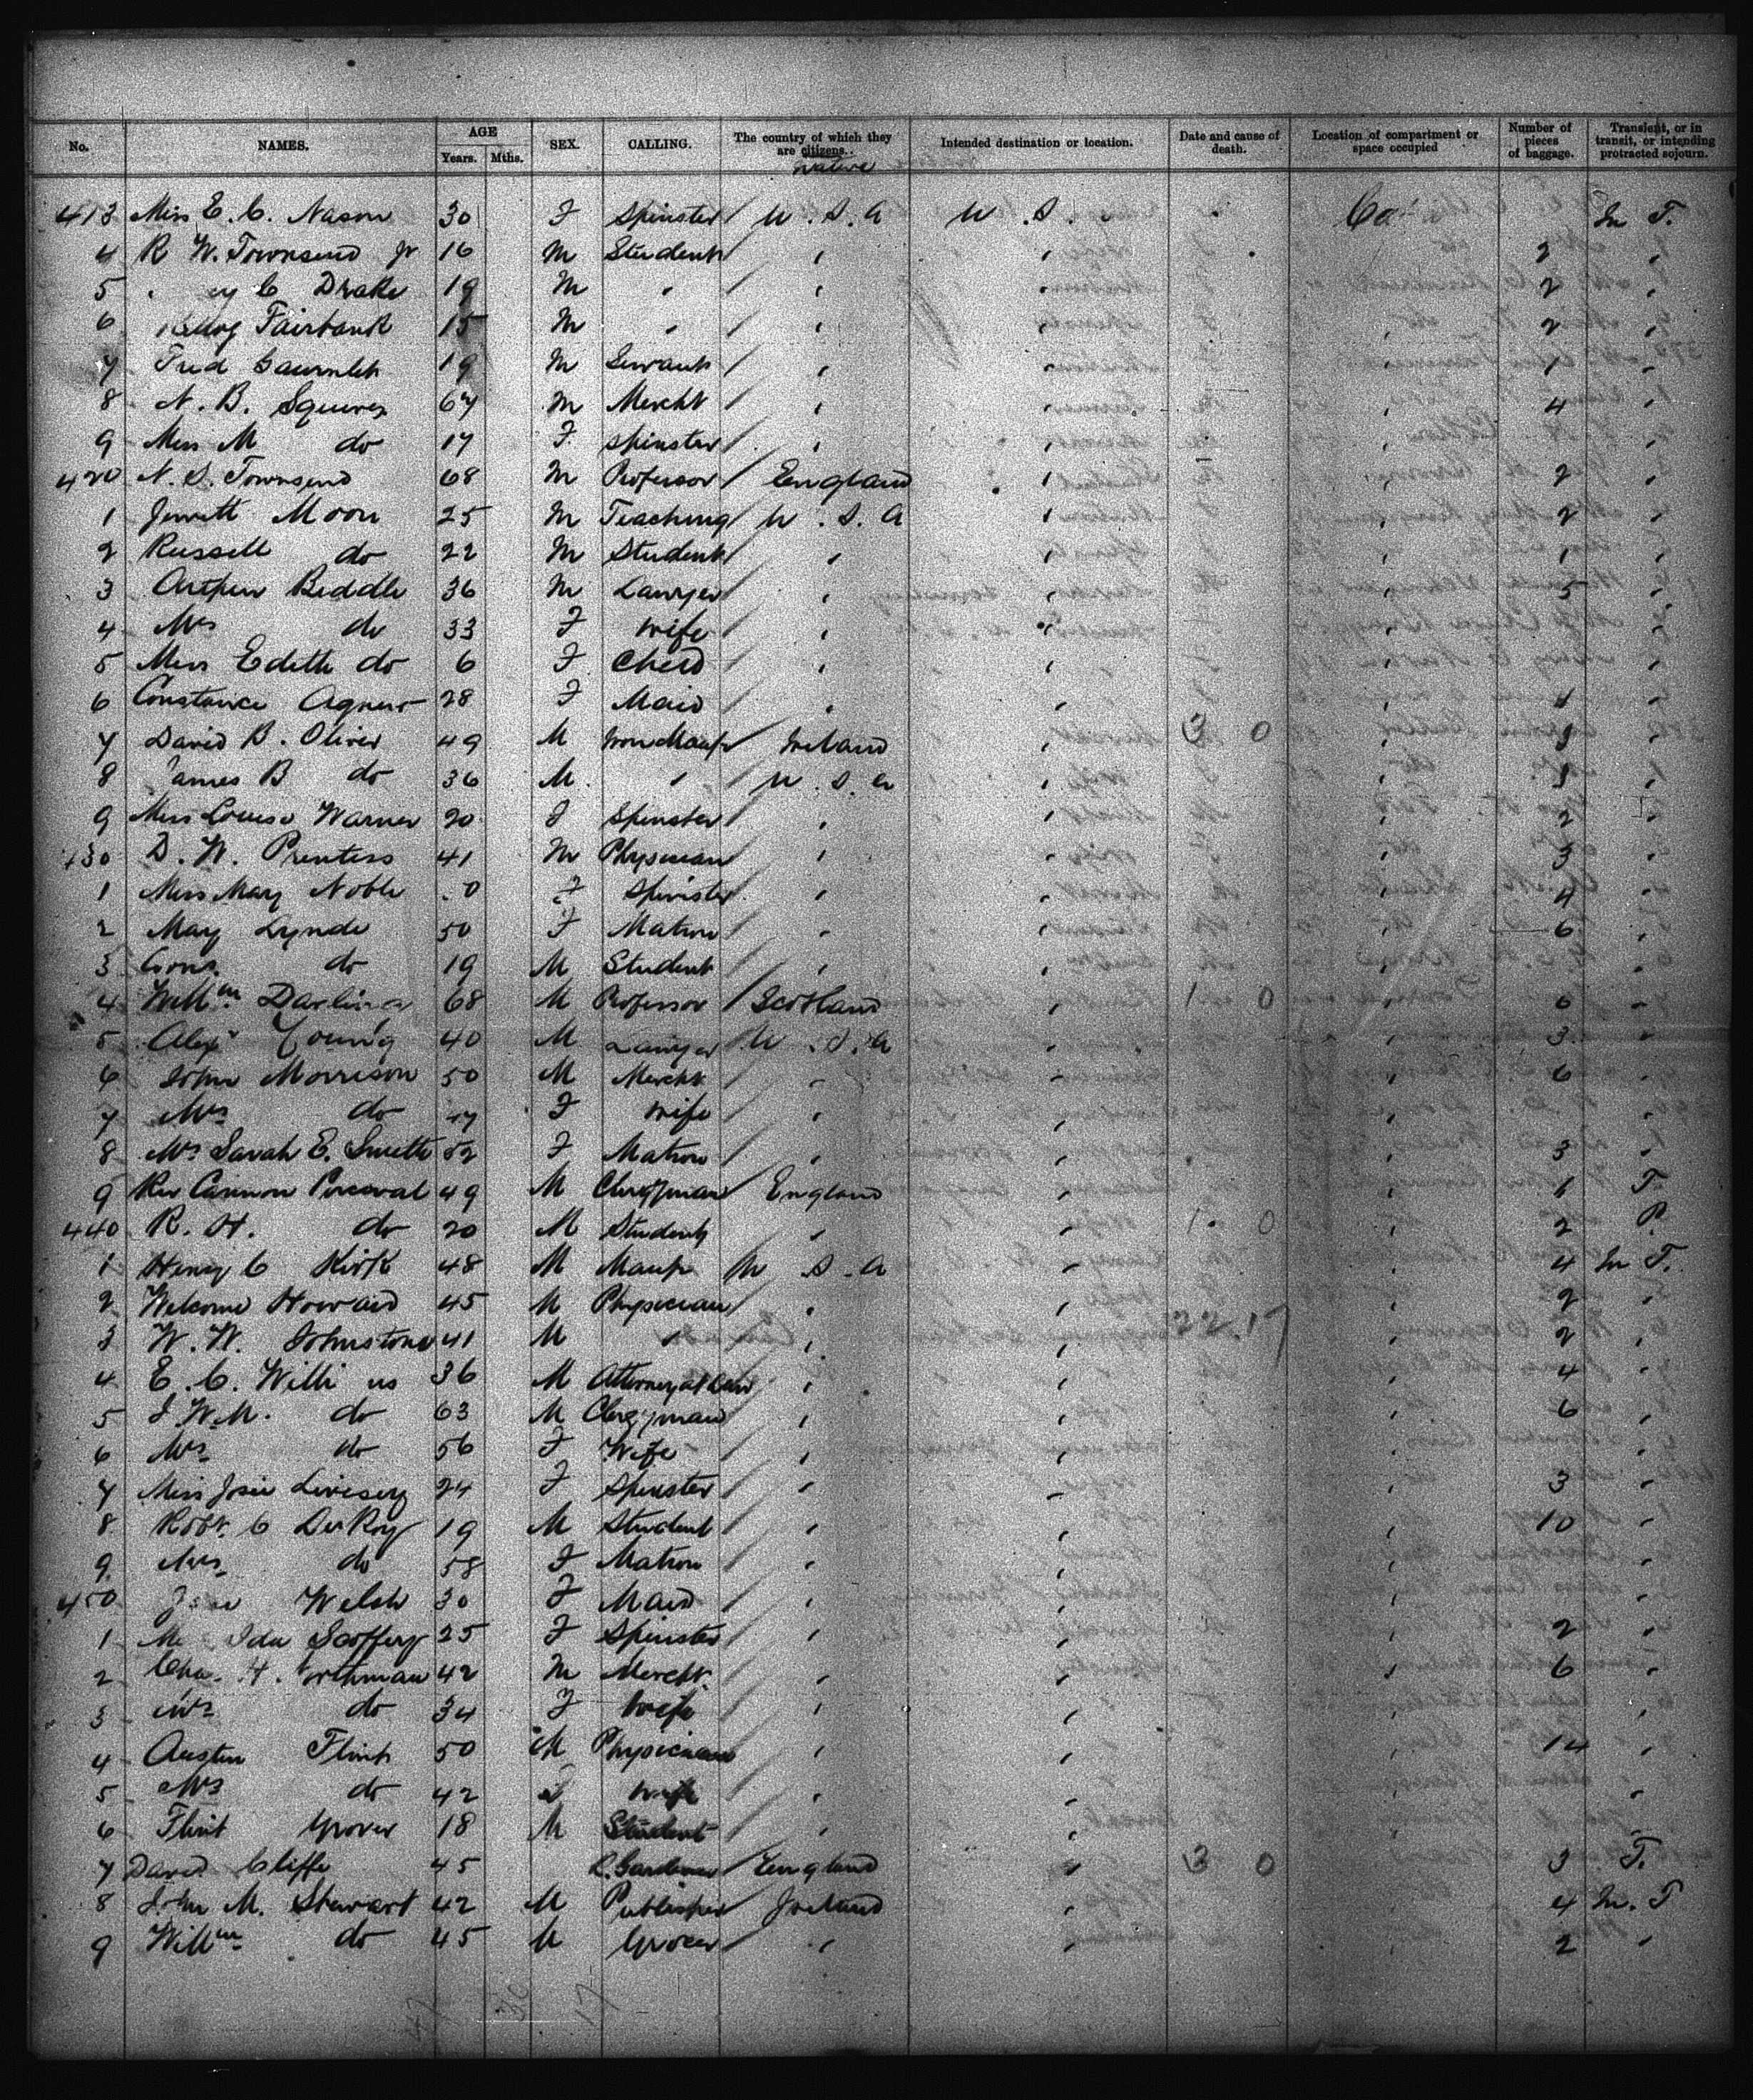 No. NAMES. AGE Years. Mths. SEX. CALLING. The country of which they are citizens. native Intended destination or location. Date and cause of death. Location of compartment or space occupied Number of pieces of baggage. Transient, or in transit, or intending protracted sojourn.
413 Miss E. C. Nason 30 F Spinster U.S.A U.S. In T.
4 R W. Townsend Jr 16 M Student " " 2 "
5 C Drake 19 M " " " 2 "
6 Fairbank 15 M " " " 2 "
7 Fred 19 M Servant " " 1 "
8 N. B. Squires 67 M Mercht " " 4 "
9 Miss M do 17 F Spinster " " "
420 N. S. Townsend 68 M Professor England " 2 "
1 Jewett Moon 25 M Teaching U.S.A " 2 "
2 Russell do 22 M Student " " 1 "
3 Arthur Biddle 36 M Lawyer " " 5 "
4 Mrs do 33 F Wife " " "
5 Miss Edith do 6 F Child " " "
6 Constance Agnew 28 F Maid " " "
7 David B. Oliver 49 M Iron Manfr Ireland " 3 0 "
8 James B do 36 M " U.S.A " "
9 Miss Louise Warner 20 F Spinster " " 2 "
430 D. W. Prentiss 41 M Physician " " 3 "
1 Miss Mary Noble F Spinster " " 4 "
2 May Lynde 50 F Matron " " 6 "
3 do 19 M Student " "
4 Willm Darling 68 M Professor Scotland " 1 0 6 "
5 Alexr Young 40 M Lawyer U.S.A " 3 "
6 John Morrison 50 M Mercht " " 6 "
7 Mrs do F Wife " " "
8 Mrs Sarah E. Smith 52 F Matron " " 3 "
9 Rev Cannon Perceval 49 M Clergyman England " 1 T.
440 R. H. do 20 M Student " " 1 0 2 P.
1 Henry C Kirk 48 M Manfr U.S.A " 4 In T.
2 Welcome Howard 45 M Physician " " 2 "
3 W. W. Johnstone 41 M " " " 22.17 2 "
4 E. C. 36 M Attorney at Law " " 4 "
5 J. W. M. do 63 M Clergyman " " 6 "
6 Mrs do 56 F Wife " " "
7 Miss Josie Livesey 24 F Spinster " " 3 "
8 Robt C DeRoy 19 M Student " " 10 "
9 Mrs do 58 F Matron " " "
450 Welsh 30 F Maid " " "
1 Ida 25 F Spinster " " 2 "
2 Chas. H. 42 M Mercht " " 6 "
3 Mrs do 34 F Wife " " "
4 Austin Flint 50 M Physician " " 14 "
5 Mrs do 42 F Wife " " "
6 Flint Grover 18 M Student " " "
7 David Cliffe 45 England " 3 0 3 T.
8 John M. Stewart 42 M Publisher Ireland " 4 In. T
9 Willm do 45 M Grocer " " 2 "